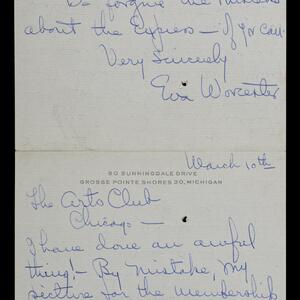 Do forgive me
about the Express — if you can.
Very Sincerely
Eva Worcester
90 SUNNINGDALE DRIVE
GROSSE POINTE SHORES 30, MICHIGAN
March 10th
The Arts Club
Chicago —
I have done an awful
thing! — By mistake, my
picture for the membership